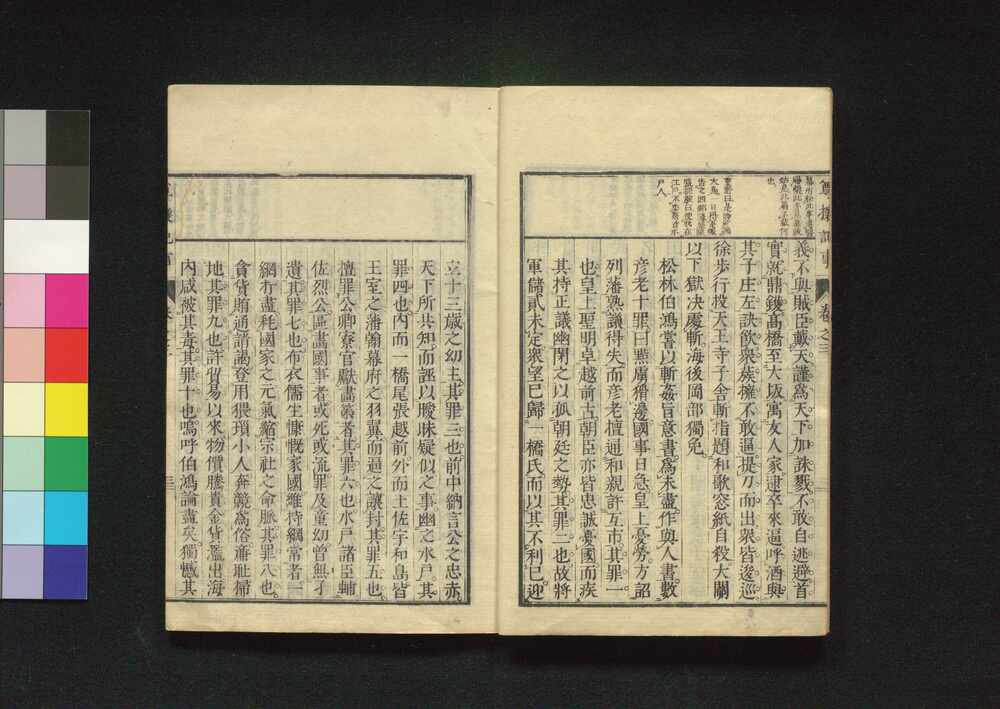 義不與賊臣戴天謹爲天下加誅戮不敢自逃避首
實就鼎鑊髙橋至大坂寓友人家逮卒來逼呼酒與
其子庄左訣飮衆蔟擁不敢逼提刀而出衆皆逡巡
徐歩行投天王寺子舎斬指題和歌窓紙自殺大關
以下獄决處斬海後岡部獨免
松林伯鴻嘗以斬姦旨意書爲未盡作與人書數
彦老十罪曰點虜猾邊國事日急皇上憂勞方詔
列藩熟議得失而彦老擅通和親許互市其罪一
也皇上聖明卓越前古朝臣亦皆忠誠憂國而疾
其持正議幽閉之以孤朝廷之勢其罪二也故將
軍儲貳未定衆望已歸一橋氏而以其不利已迎
立十三歳之幼主其罪三也前中納言公之忠赤
天下所共知而誣以曖昧疑似之事幽之水戸其
罪四也内而一橋尾張越前外而土佐宇和島皆
王室之藩翰幕府之羽翼而逼之讓封其罪五也
擅罪公卿寮官獻畵策者其罪六也水戸諸臣輔
佐烈公區畵國事者或死或流罪及童幼曾無孑
遺其罪七也布衣儒生慷慨家國維持綱常者一
網冇盡耗國家之元氣縮宗社之命脈其罪八也
貪貨賄通請謁登用猥瑣小人奔競爲俗廉耻掃
地其罪九也許貿易以來物價騰貴金貨濫出海
内咸被其毒其罪十也嗚呼伯鴻論盡矣獨憾其
卷之三